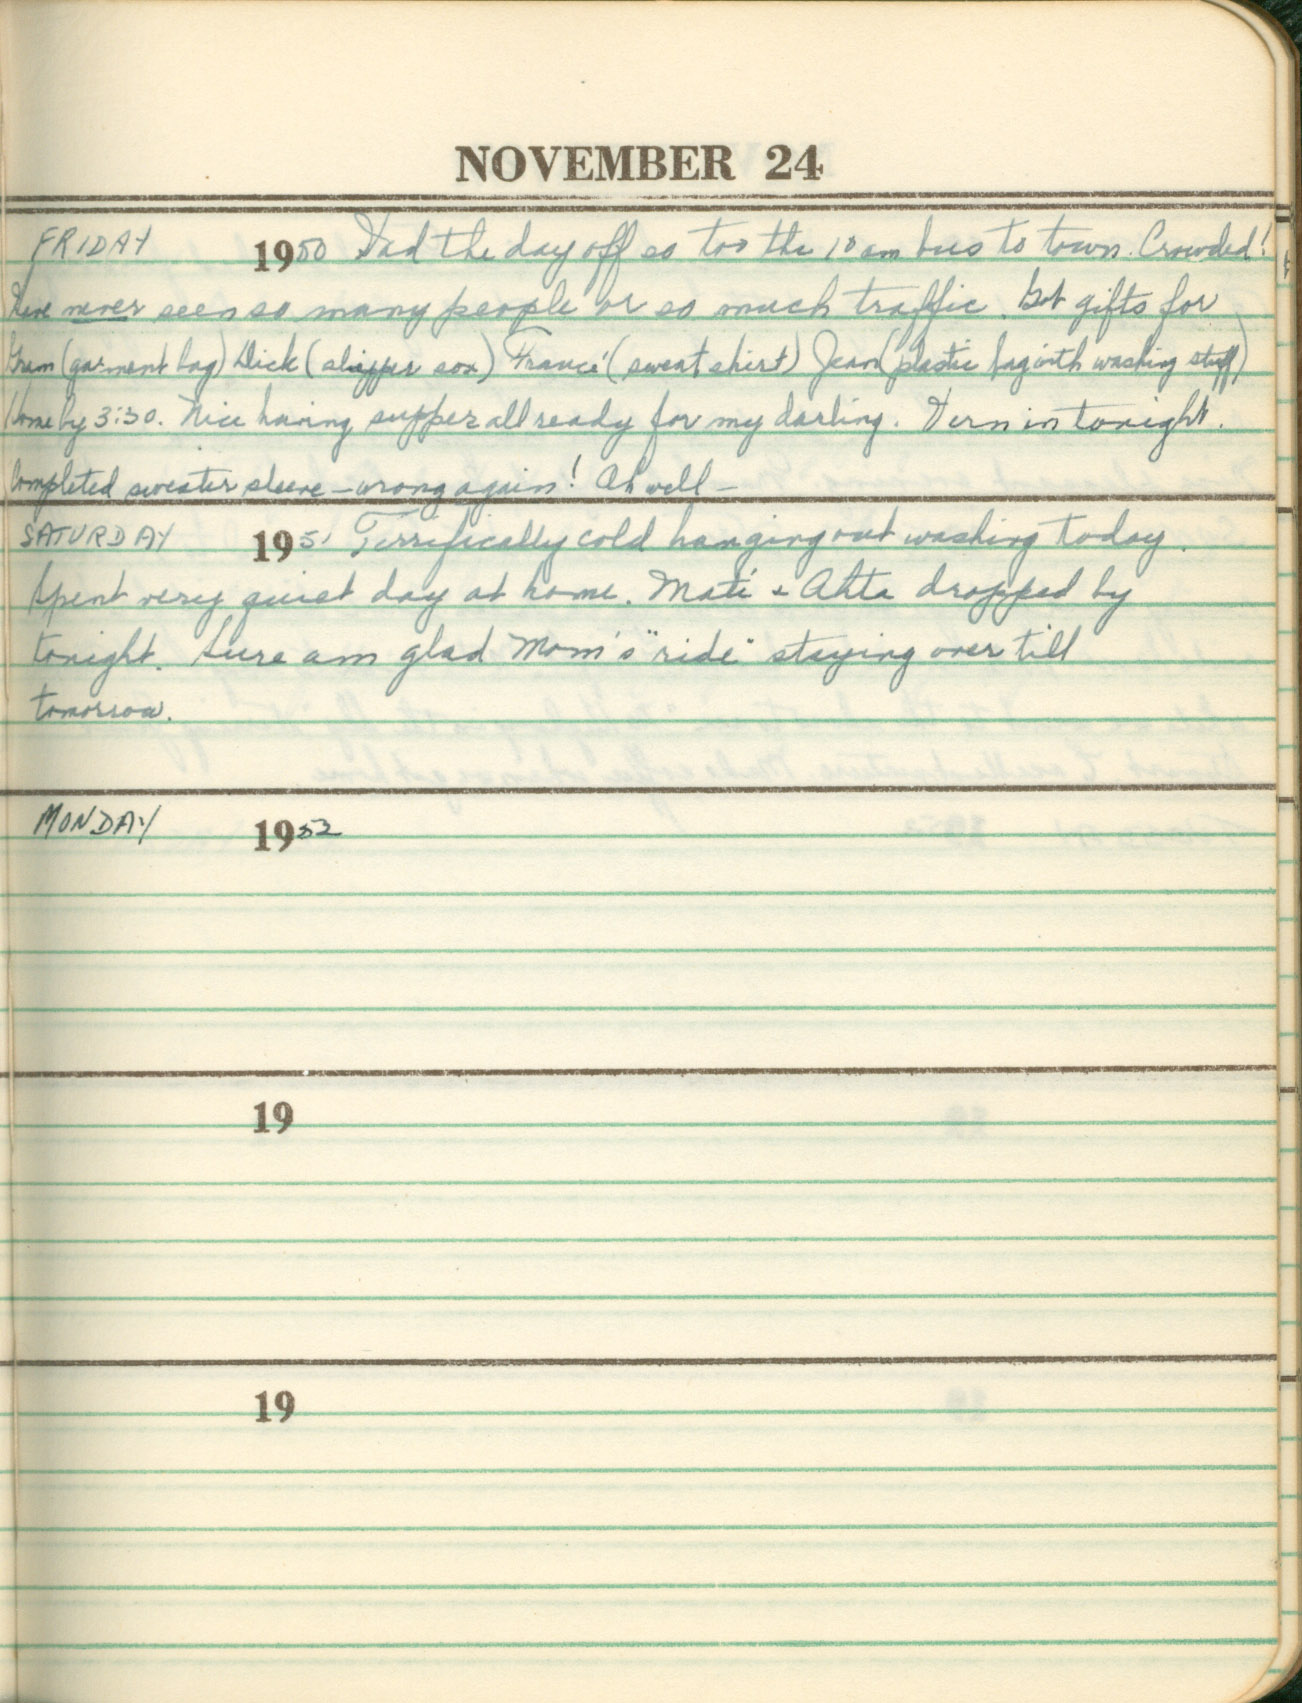 NOVEMBER 24
FRIDAY 1950 Had the day off so too the 10 am bus to town. Crowded!
Have never seen so many people or so much traffic. Got gifts for
Gram (garment bag) Dick (slipper sox) France' (sweat shirt) Jean (plastic bag with washing stuff)
Home by 3:30. Nice having supper all ready for my darling. Vern in tonight.
Completed sweater sleeve - wrong again! Ah well -
SATURDAY 1951 Terrifically cold hanging out washing today.
Spent very quiet day at home. & dropped by
tonight. Sure am glad Mom's "ride" staying over till
tomorrow.
MONDAY 1952
19
19